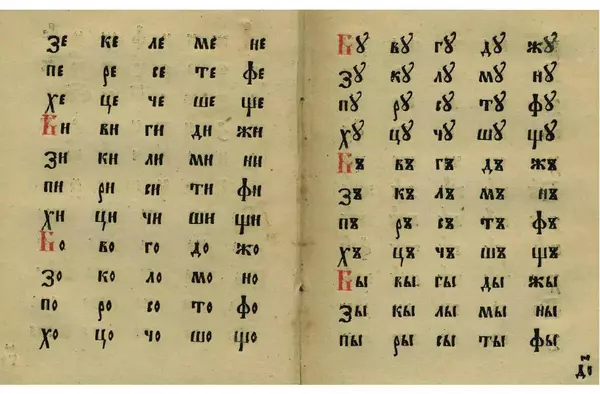 зе ке ле ме не
пе ре се те фе
хе це че ше ще
Би ви ги ди жи
зи ки ли ми ни
пи ри си ти фи
хи ци чи ши щи
Бо во го до жо
зо ко ло мо но
по ро со то фо
хо цо чо шо що
Бꙋ вꙋ гꙋ дꙋ жꙋ
зꙋ кꙋ лꙋ мꙋ нꙋ
пꙋ рꙋ сꙋ тꙋ фꙋ
хꙋ цꙋ чꙋ шꙋ щꙋ
Бъ въ гъ дъ жъ
зъ къ лъ мъ нъ
пъ ръ съ тъ фъ
хъ цъ чъ шъ щъ
Бы вы гы ды жы
зы кы лы мы ны
пы ры сы ты фы